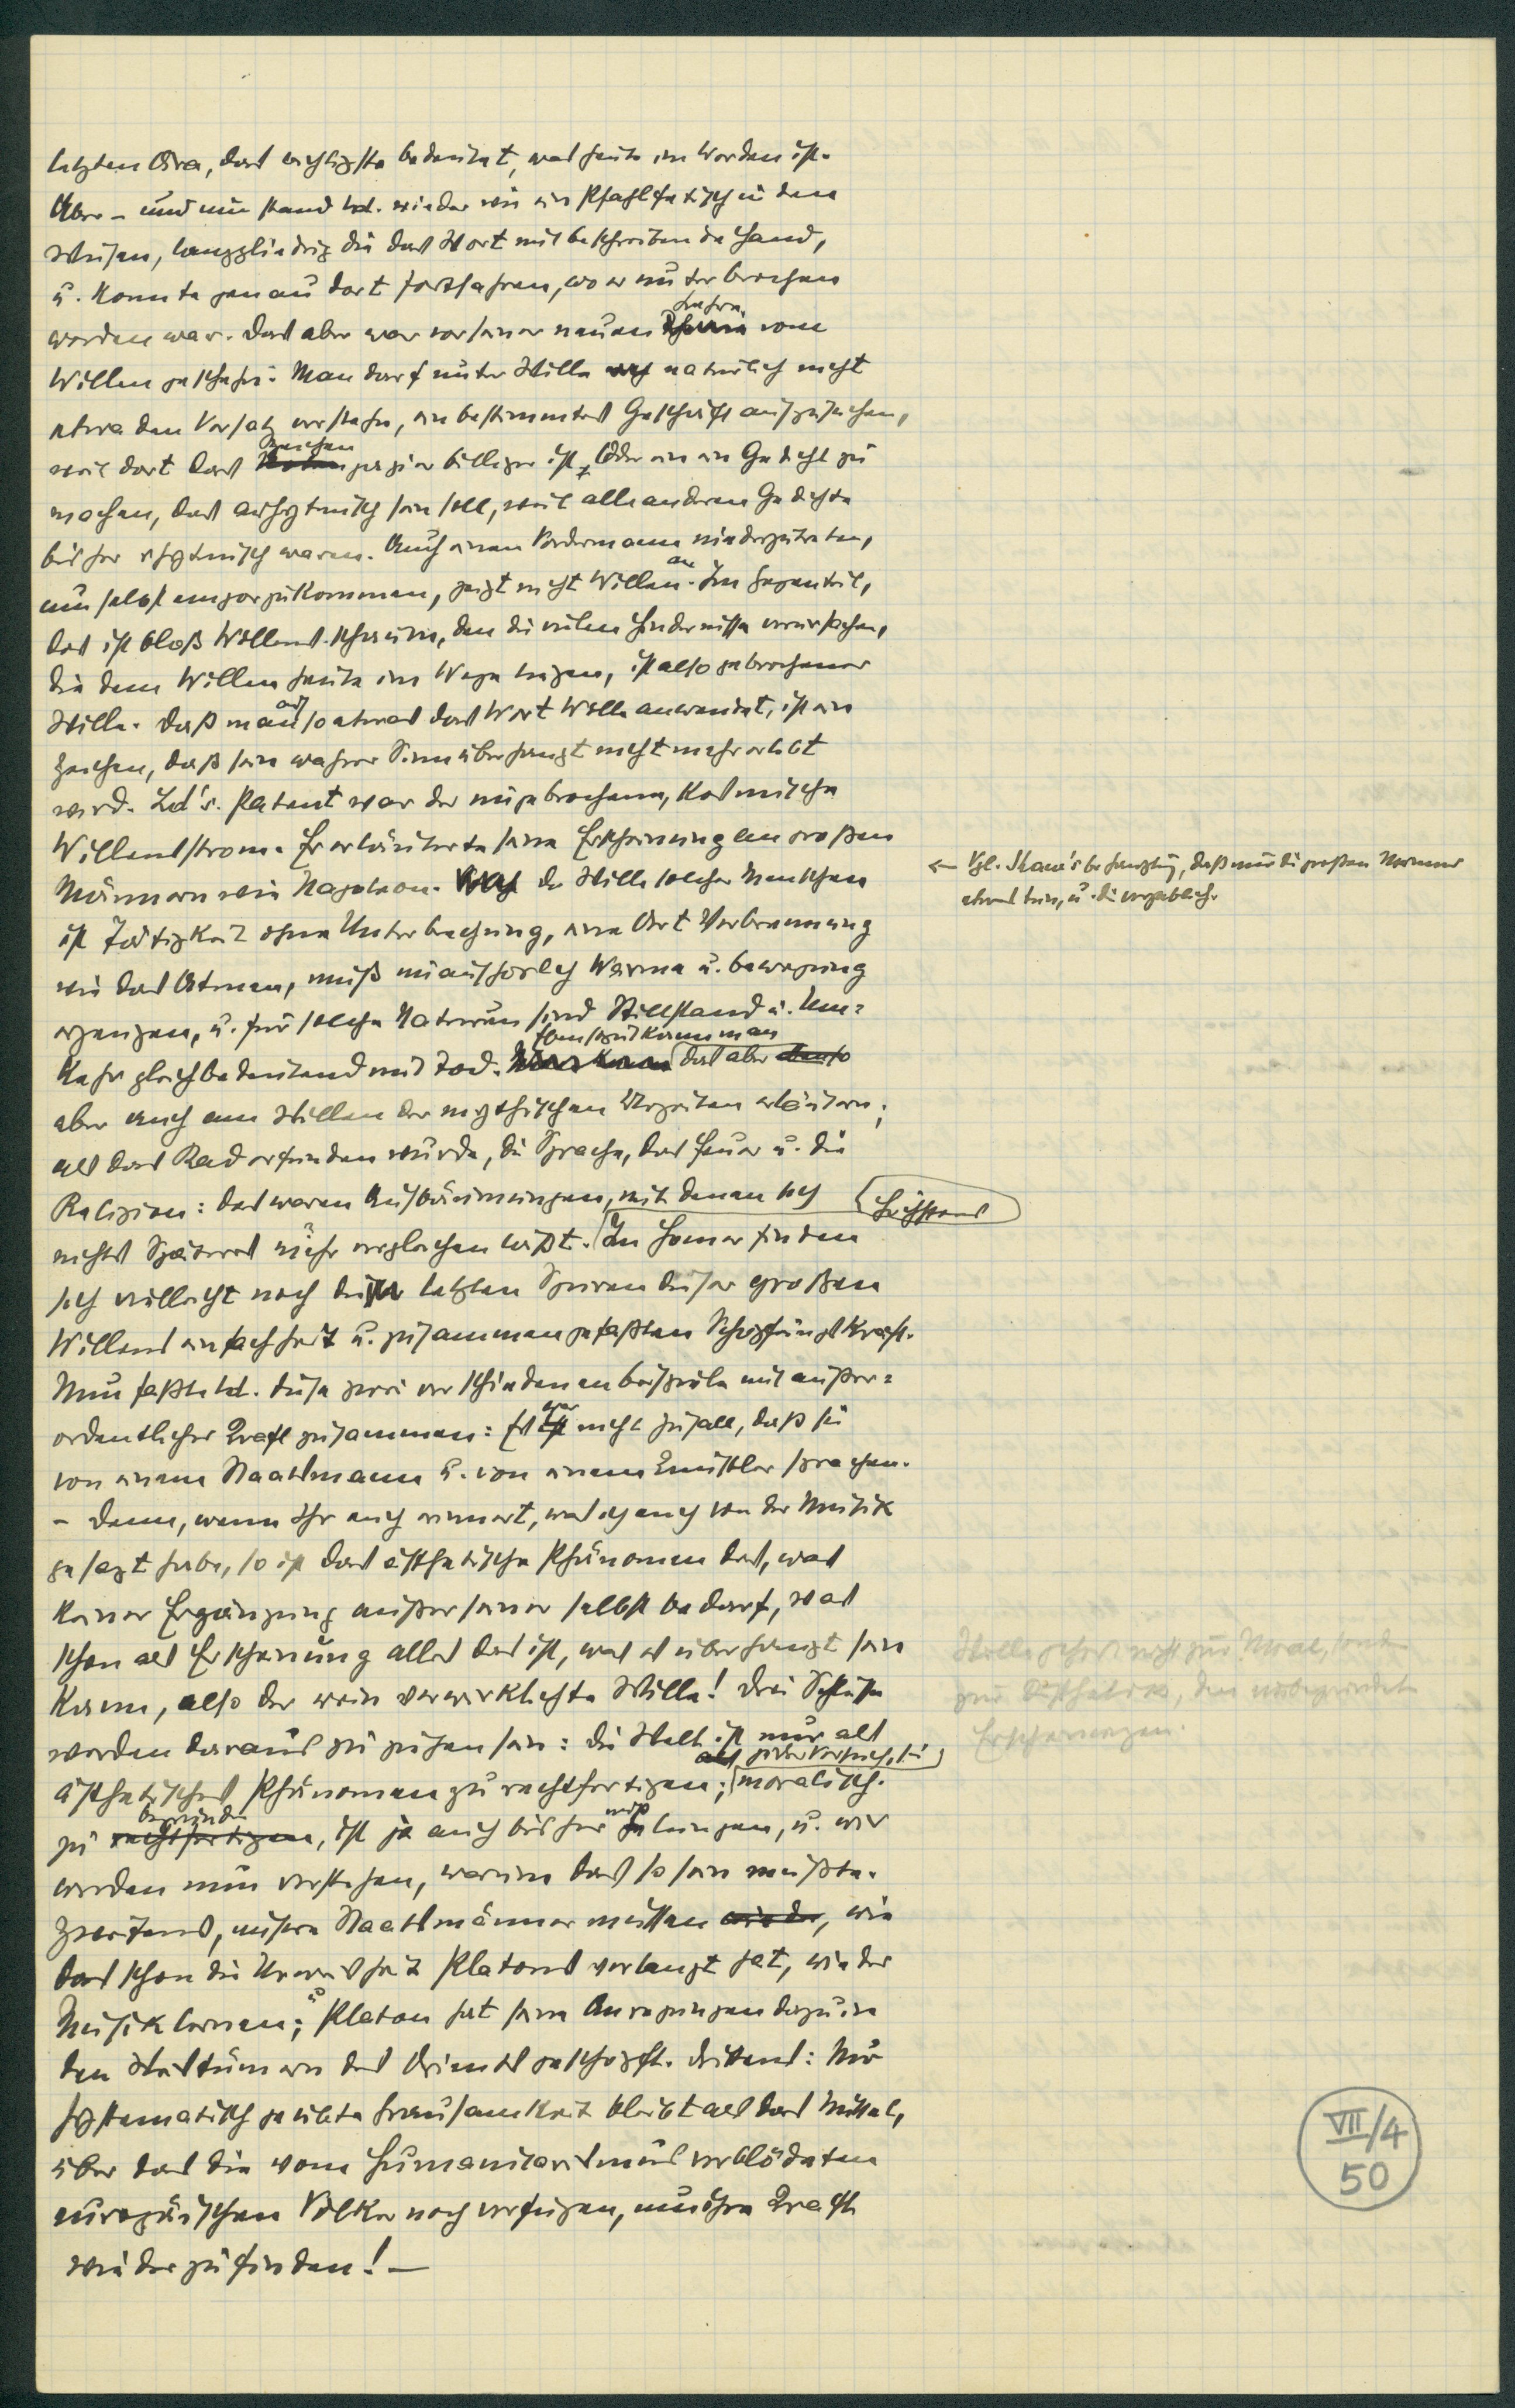 letzten Ära, das wichtigste bedeutet, was heute im Werden ist.
Aber – und nun stand Ld. wieder wie ein Pfahlfetisch in dem
Wesen, langgliedrig die das Wort mitbeschreibende Hand,
u. konnte genau dort fortfahren, wo er unterbrochen
worden war. Das aber war vor seiner neuen Lehre vom
Willen geschehn: Man darf unter Wille natürlich nicht
etwa den Vorsatz verstehn, ein bestimmtes Geschäft aufzusuchen,
weil dort das Zeichenpapier billiger ist, Oder ein Gedicht zu
machen, das arhytmisch sein soll, weil alle anderen Gedichte
bisher rhytmisch waren. Auch einen Vordermann niederzutreten,
um selbst emporzukommen, zeigt nicht Willen an. Im Gegenteil,
das ist bloß Willensschaum, den die vielen Hindernisse verursachen,
die dem Willen heute im Wege liegen, ist also gebrochener
Wille. Daß man auf so etwas das Wort Wille anwendet, ist ein
Zeichen, daß sein wahrer Sinn überhaupt nicht mehr erlebt
wird. Ld's. Patent war der ungebrochene, kosmische
Willensstrom. Er erläuterte seine Erscheinung an großen
Männern wie Napoleon. der Wille solcher Menschen
ist Tätigkeit ohne Unterbrechung, eine Art Verbrennung
wie das Atmen, muß unaufhörlich Wärme u. Bewegung
erzeugen, u. für solche Naturen sind Stillstand u. Um=
kehr gleichbedeutend mit Tod. Ebensogut kann man das aber
aber auch am Willen der mythischen Urzeiten erläutern;
als das Rad erfunden wurde, die Sprache, das Feuer u. die
Religion: das waren Aufbäumungen, mit denen sich
nichts Späteres mehr vergleichen läßt. In Homer finden
sich vielleicht noch die letzten Spuren dieser großen
Willenseinfachheit u. zusammengefaßten Schöpfungskraft.
Nun faßte Ld. diese zwei verschiedenen Beispiele mit außer=
ordentlicher Kraft zusammen: Es war nicht Zufall, daß sie
von einem Staatsmann u. von einem Künstler sprachen.
– Denn, wenn Ihr euch erinnert, was ich euch von der Musik
gesagt habe, so ist das ästhetische Phänomen das, was
keiner Ergänzung außer seiner selbst bedarf, was
schon als Erscheinung alles das ist, was es überhaupt sein
kann, also der rein verwirklichte Wille! Drei Schlüsse
werden daraus zu ziehen sein: Die Welt ist nur als
ästhetisches Phänomen zu rechtfertigen; jeder Versuch, sie moralisch
zu begründen, ist ja auch bisher mißlungen, u. wir
werden nun verstehen, warum das so sein mußte.
Zweitens, unsere Staatsmänner müssen wieder, wie
das schon die Urweisheit Platons verlangt hat, wieder
Musik lernen; u. Platon hat seine Anregungen dazu in
den Weistümern des Orients geschöpft. Drittens: Nur
systematisch geübte Grausamkeit bleibt als das Mittel,
über das die vom Humanitarismus verblödeten
europäischen Völker noch verfügen, um ihre Kraft
wiederzufinden! –
← Vgl. Shaw's Behauptung, daß nur die großen Männer
etwas tun, u. die vergeblich.
Wille gehört nicht zur Moral, sond
zur Ästhetik, den unbegründet
Erscheinungen.
VII/4
50